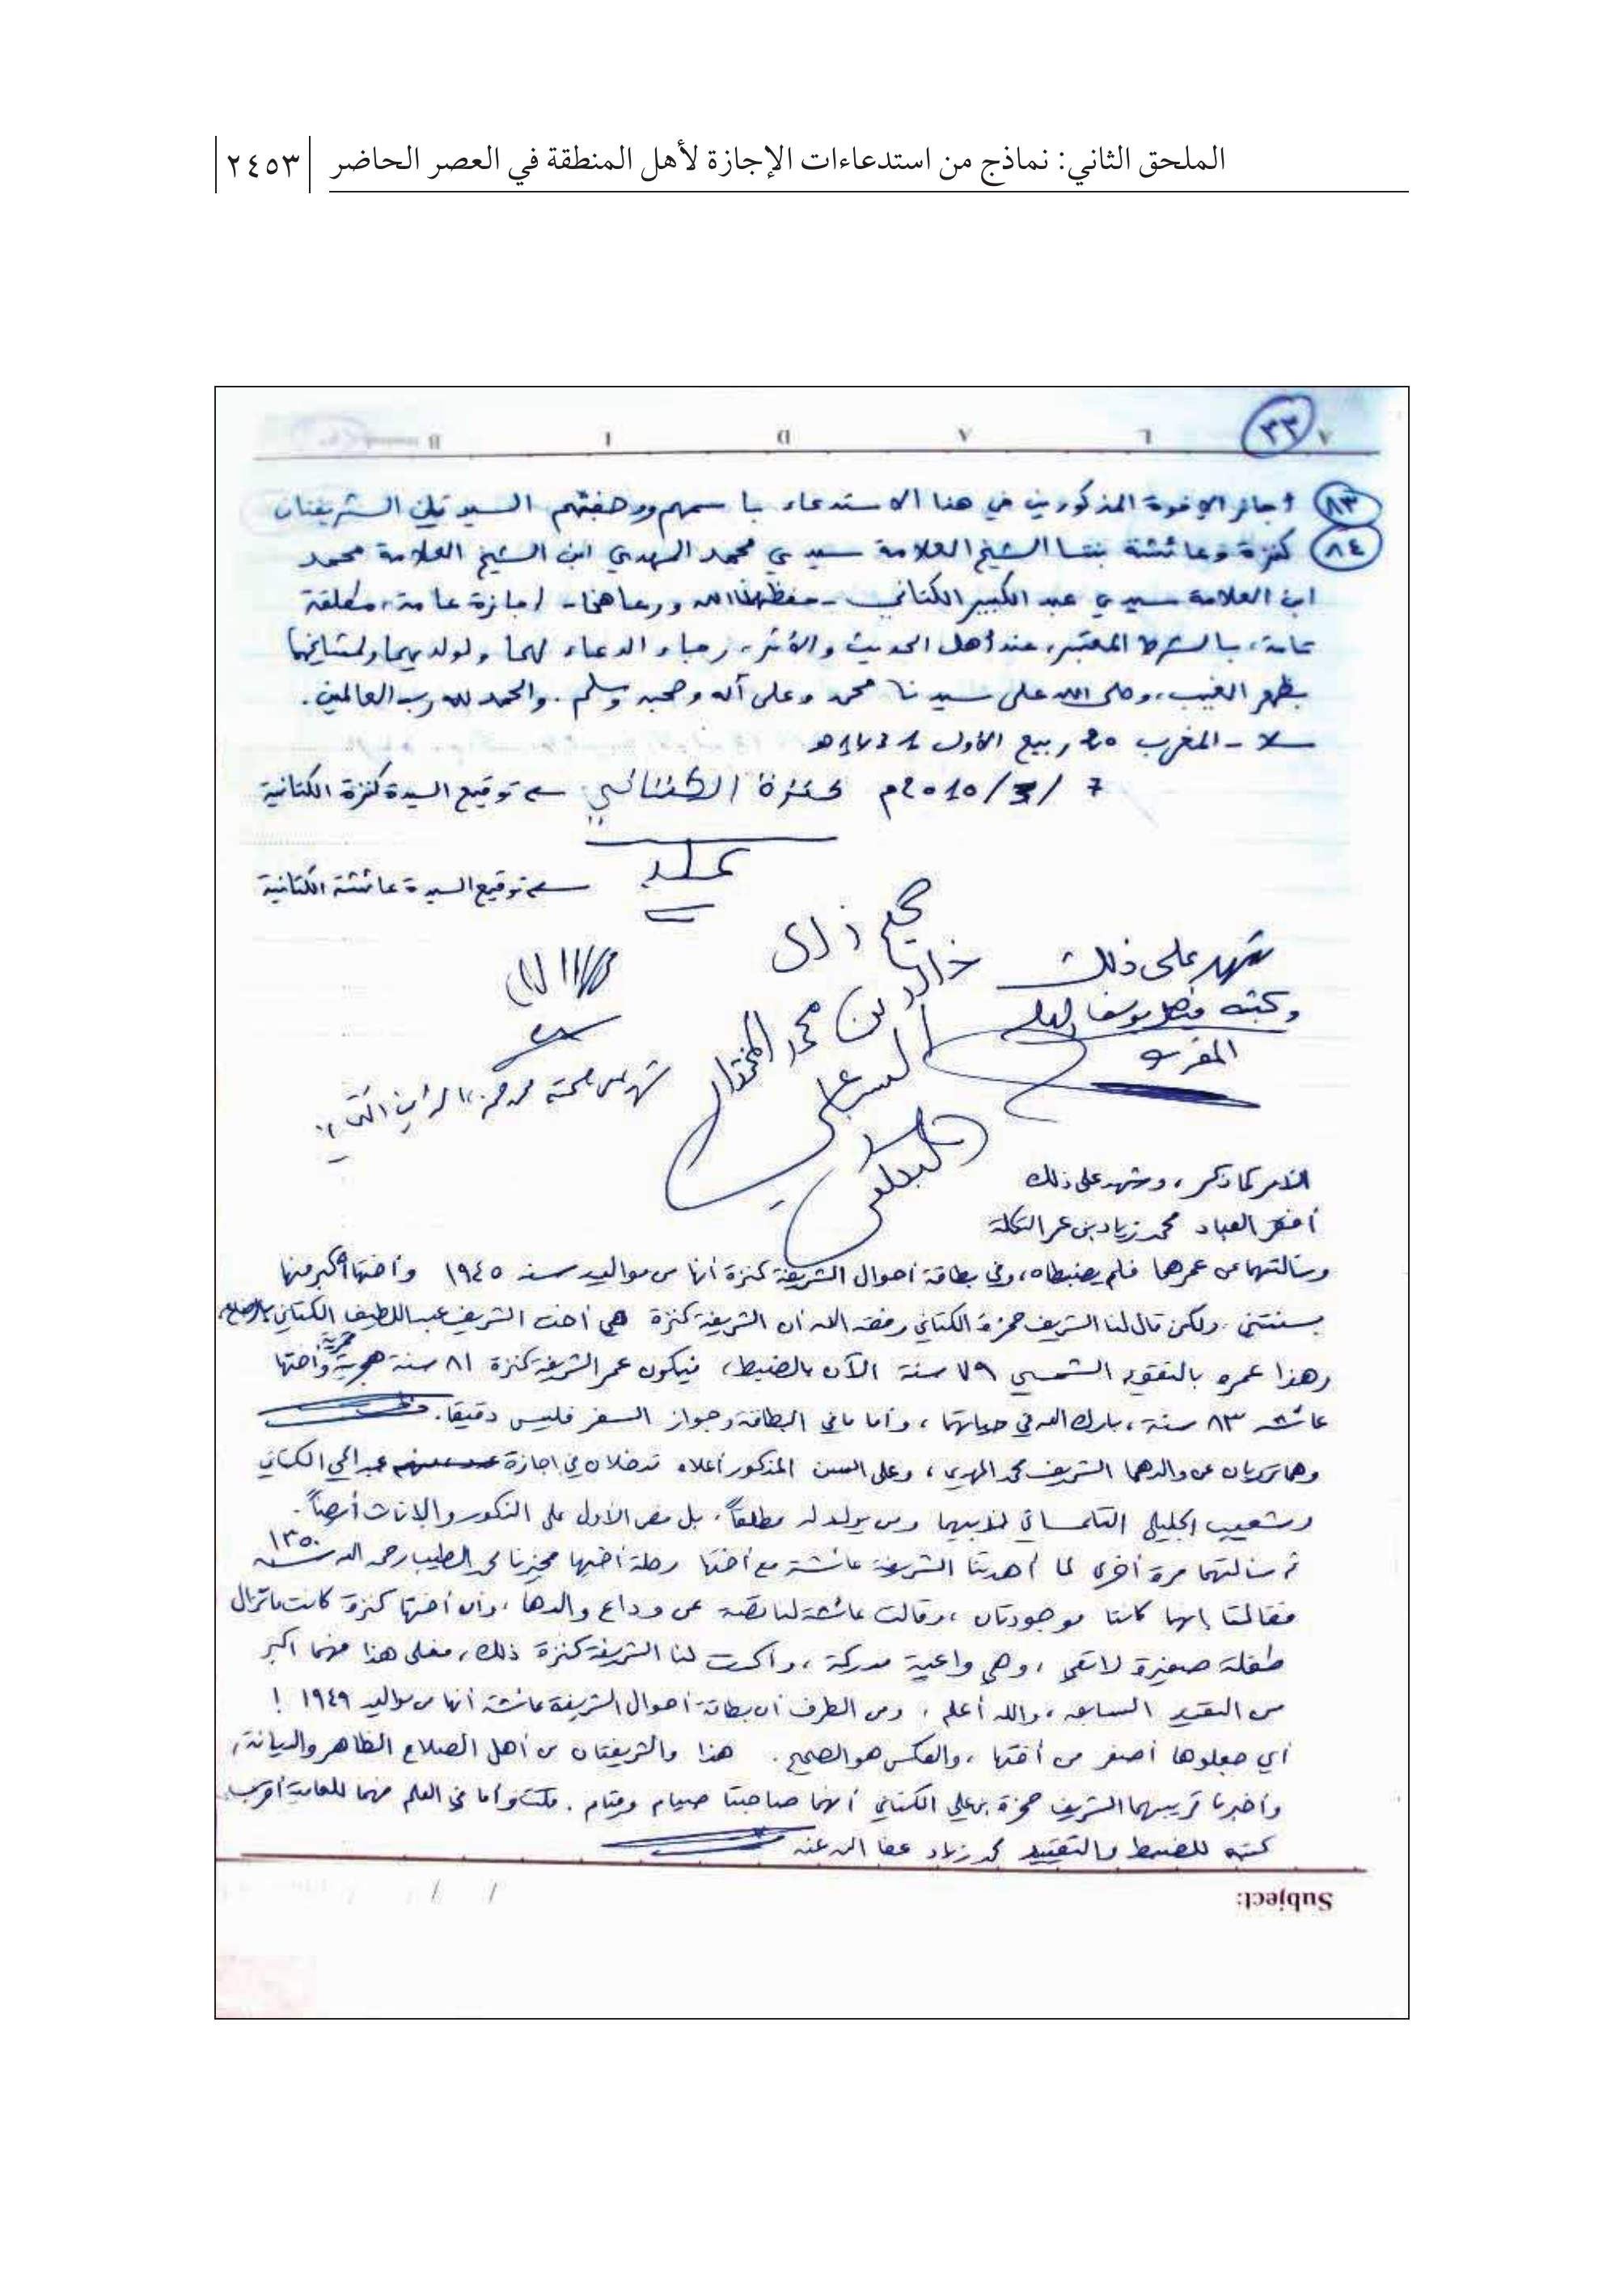 الملحق الثاني: نماذج من استدعاءات الإجازة لأهل المنطقة في العصر الحاضر ٢٤٥٣
٣٣
٨٣ أجاز الإخوة المذكورين في هذا الاستدعاء باسمهم وصفتهم السيدتان الشريفتان
٨٤ كنزة وعائشة بنتا الشيخ العلامة سيدي محمد المهدي ابن الشيخ العلامة محمد
ابن العلامة سيدي عبد الكبير الكتاني - حفظهما الله ورعاهما - إجازة عامة، مطلقة
تامة، بالشرط المعتبر، عند أهل الحديث والأثر، رجاء الدعاء لهما ولوالديهما ولمشايخهما
بظهر الغيب، وصلى الله على سيدنا محمد وعلى آله وصحبه وسلم. والحمد لله رب العالمين.
سلا - المغرب 20 ربيع الأول 1431 هـ
7 /3/ 2010م كنزة الكتاني توقيع السيدة كنزة الكتانية
توقيع السيدة عائشة الكتانية
صحيح ذلك
خالد بن محمد المختار
السباعي
شهد على ذلك
وكتبه فيصل يوسف العلي
شهد على صحته محمد حمزة بن علي الكتاني
الأمر كما ذكر، وشهد على ذلك
أفقر العباد محمد زياد بن عمر التكلة
وسألتهما عن عمرهما فلم يضبطاه، وفي بطاقة أحوال الشريفة كنزة أنها من مواليد سنة ١٩٤٥ وأختها أكبر منها
بسنتين. ولكن قال لنا الشريف حمزة الكتاني وفقه الله أن الشريفة كنزة هي أخت الشريف عبد اللطيف الكتاني بالرضاع،
وهذا عمره بالتقويم الشمسي ٧٩ سنة الآن بالضبط، فيكون عمر الشريفة كنزة ٨١ سنة هجرية وأختها
عائشة ٨٣ سنة، بارك الله في حياتهما، وأما ما في البطاقة وجواز السفر فليس دقيقا.
وهما ترويان عن والدهما الشريف محمد المهدي، وعلى السن المذكور أعلاه تدخلان في إجازة عبد الحي الكتاني
وشعيب الجليلي التلمساني لأبيهما ومن يولد له مطلقاً، بل نص الأول على الذكور والإناث أيضاً.
ثم سألتهما مرة أخرى لما أهدتنا الشريفة عائشة مع أختها رحلة أخيها مجيزنا محمد الطيب رحمه الله سنة ١٣٥٠
فقالتا إنهما كانتا موجودتان، وقالت عائشة لنا قصة عن وداع والدها، وأن أختها كنزة كانت ما تزال
طفلة صغيرة لا تعي، وهي واعية مدركة، وأكدت لنا الشريفة كنزة ذلك، فعلى هذا فهما أكبر
من التقييد السابق، والله أعلم، ومن الطرف أن بطاقة أحوال الشريفة عائشة أنها من مواليد ١٩٤٩ !
أي جعلوها أصغر من أختها، والعكس هو الصحيح. هذا والشريفتان من أهل الصلاح الظاهر والديانة،
وأخبرنا قريبهما الشريف حمزة بن علي الكتاني أنهما صاحبتا صيام وقيام. قلت: وأما في العلم فهما للعامية أقرب.
كتبه للضبط والتقييد محمد زياد عفا الله عنه
Subject: